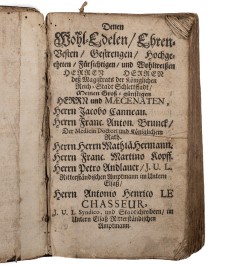 Denen
Wohl-Edelen / Ehren-
Vesten / Gestrengen / Hochge-
ehrten / Fürsichtigen / und Wohlweisen
HERREN HERREN
deß Magistrats der Königlichen
Reich-Stadt Schlettstadt /
Meinen Groß-günstigen
HERRN und MÆCENATEN,
Herrn Jacobo Canneau.
Herrn Franc. Anton. Brunck /
Der Medicin Doctorn und Königlichem
Rath.
Herrn Herrn Mathiâ Hermann.
Herrn Franc. Martino Kopff.
Herrn Petro Andlauer / J. U. L.
Ritterständischen Amptmann im Untern
Elsaß /
Herrn Antonio Henrico LE
CHASSEUR,
J. U. L. Syndico, und Stattschreibern / im
Untern Elsaß Ritterständischen
Amptmann.